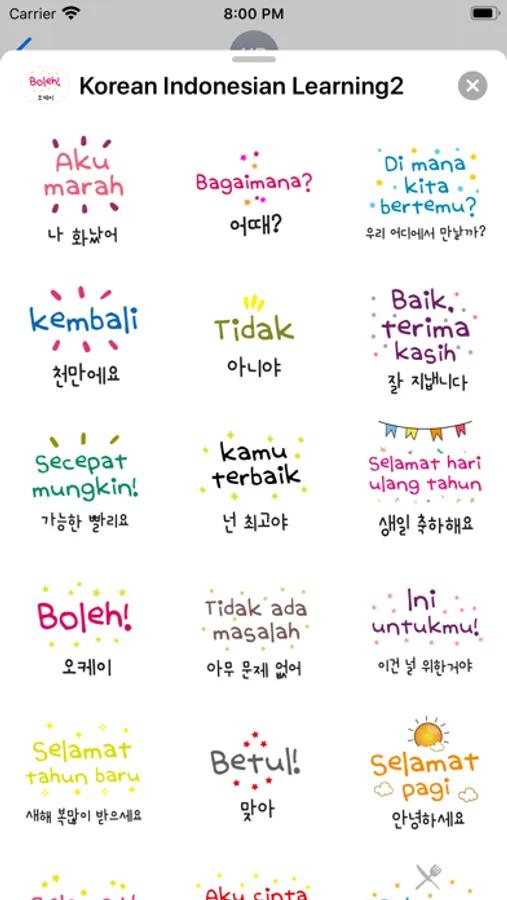 Carrier
8:00 PM
Boleh!
오케이
Korean Indonesian Learning2
Aku
marah
나 화났어
Bagaimana?
어때?
Di mana
kita
bertemu?
우리 어디에서 만날까?
kembali
천만에요
Tidak
아니야
Baik,
terima
kasih
잘 지냅니다
Secepat
mungkin!
가능한 빨리요
kamu
terbaik
넌 최고야
Selamat hari
ulang tahun
생일 축하해요
Boleh!
오케이
Tidak ada
masalah
아무 문제 없어
Ini
untukmu!
이건 널 위한거야
Selamat
tahun baru
새해 복많이 받으세요
Betul!
맞아
Selamat
pagi
안녕하세요
Aku cinta